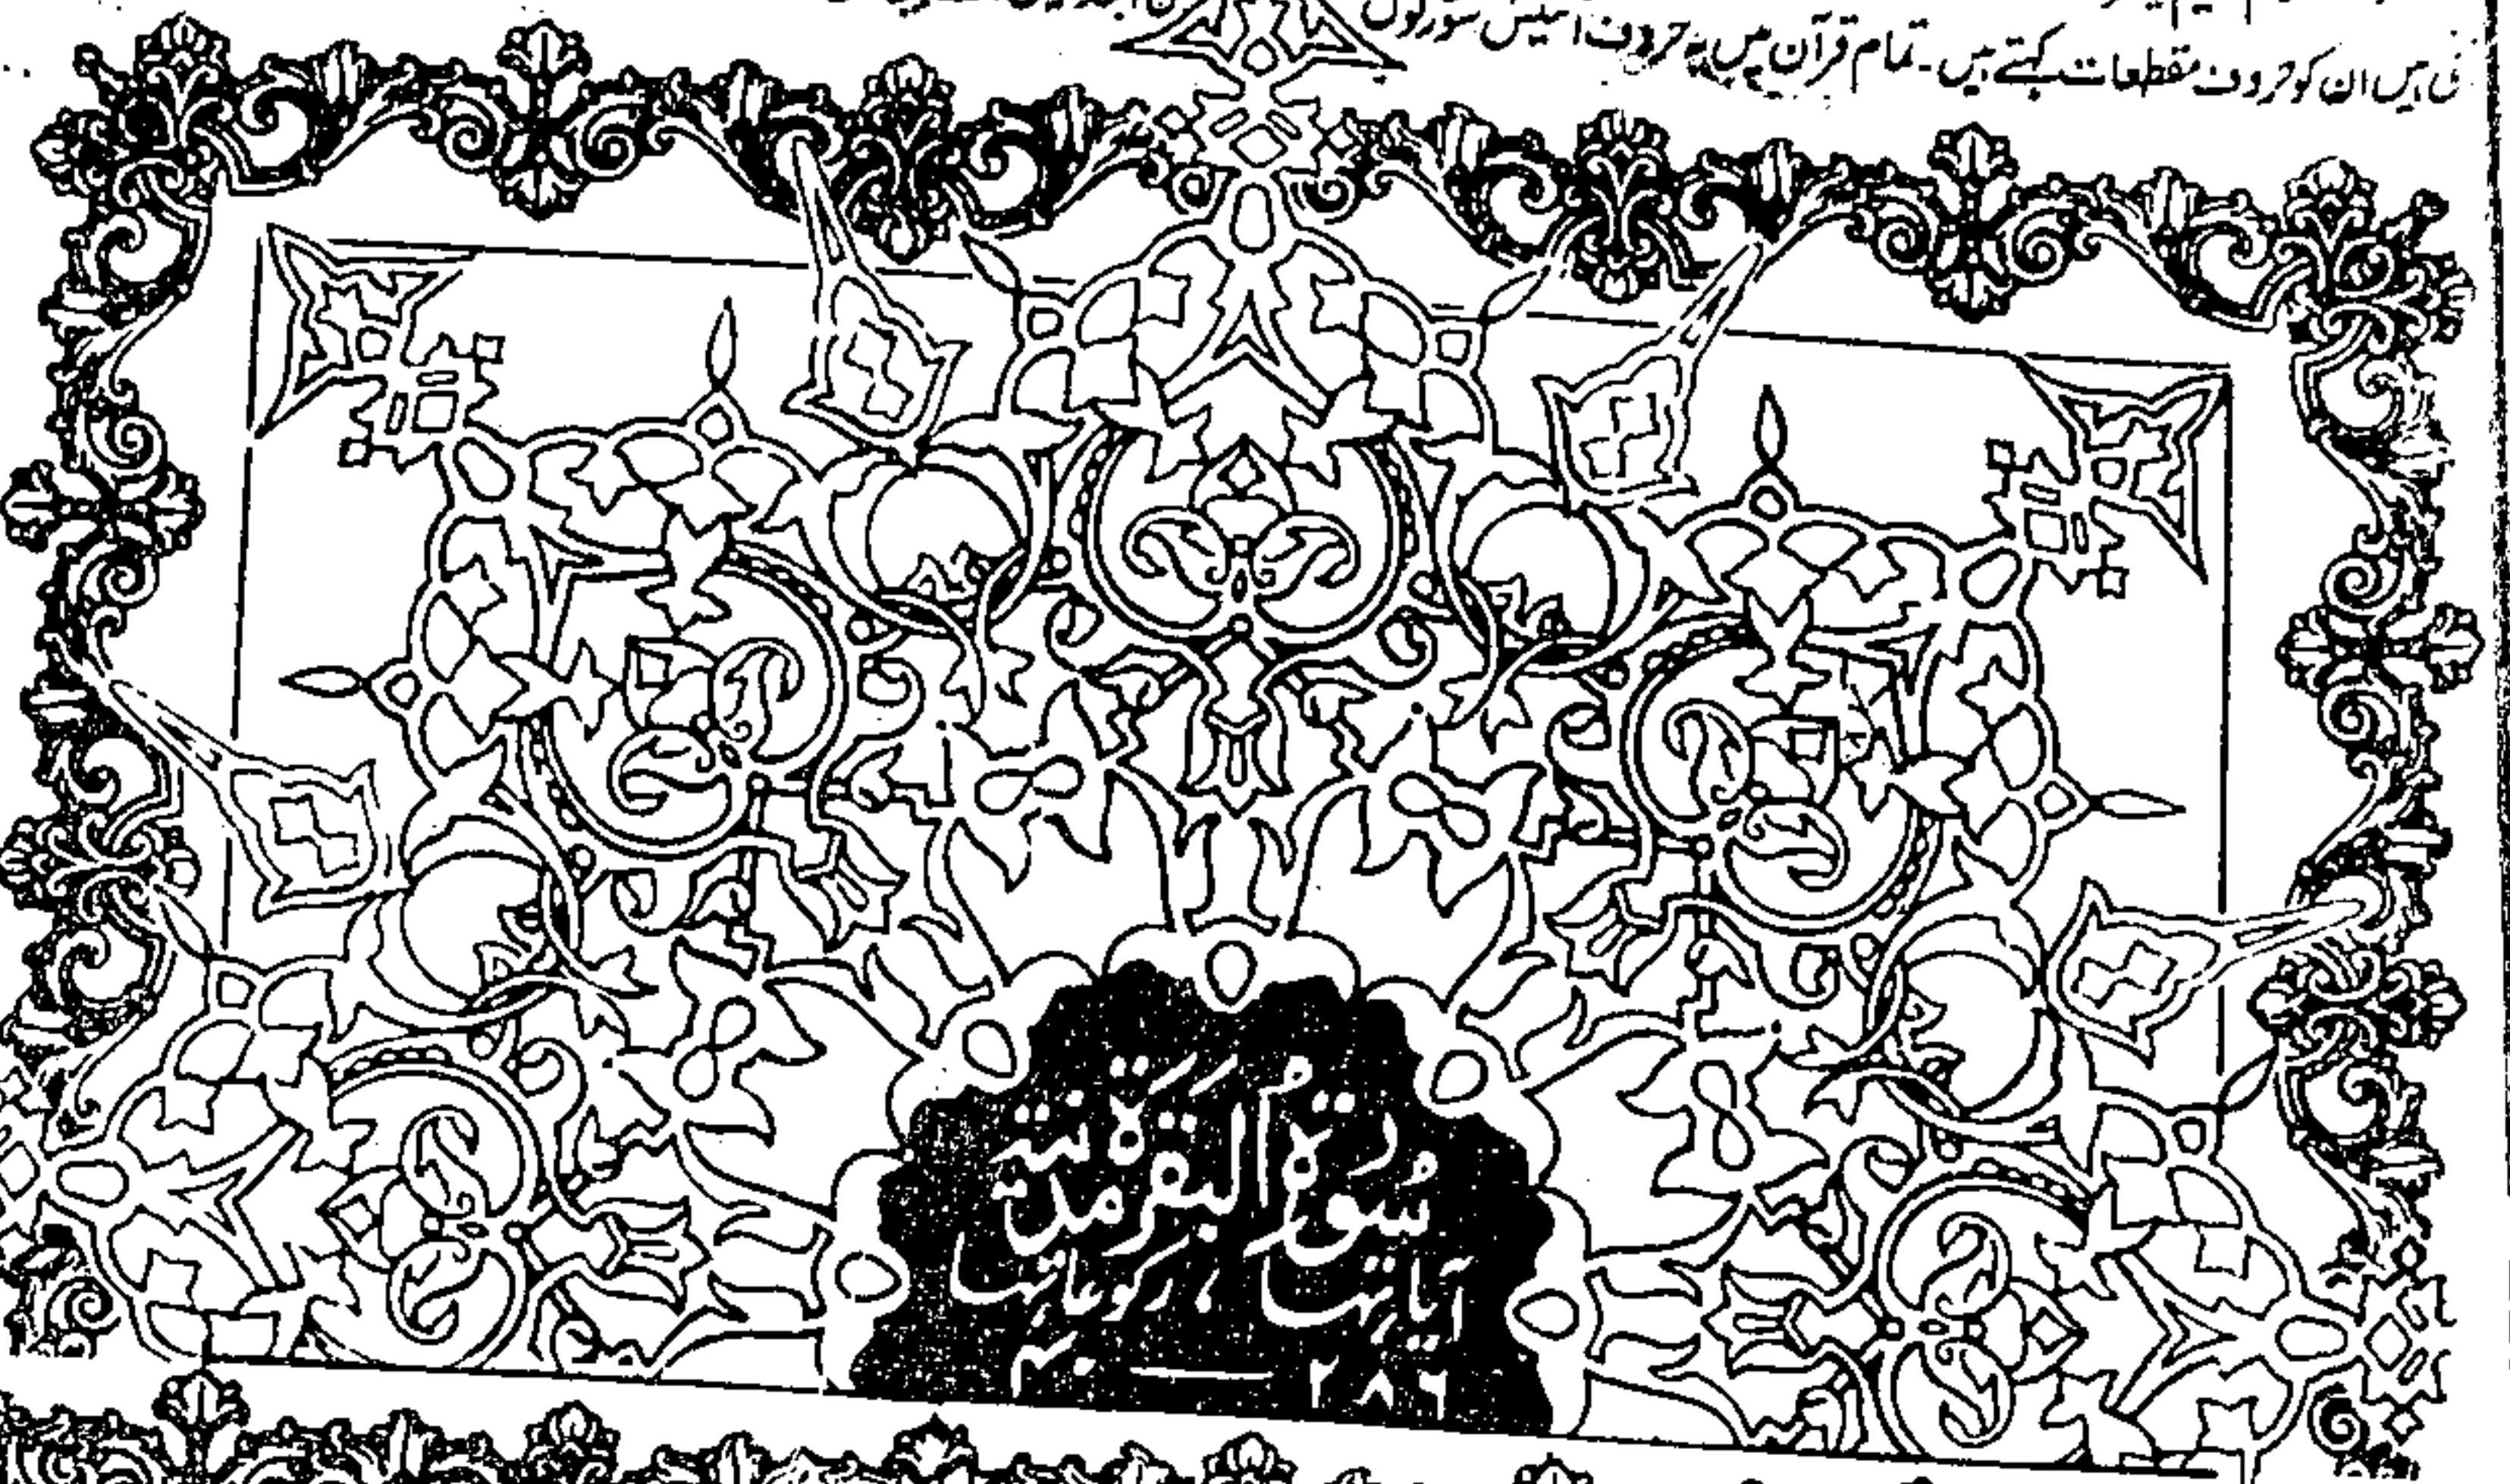 ق ہیں ان کو حروف مقطعات کہتے ہیں۔ تمام قرآن میں یہ حروف انتیس سورتوں
سُورَةُ الْبَقَرَةِ مَدَنِيَّةٌ
اٰيَاتُهَا رُكُوعَاتُهَا
۲۸۶ ۴۰